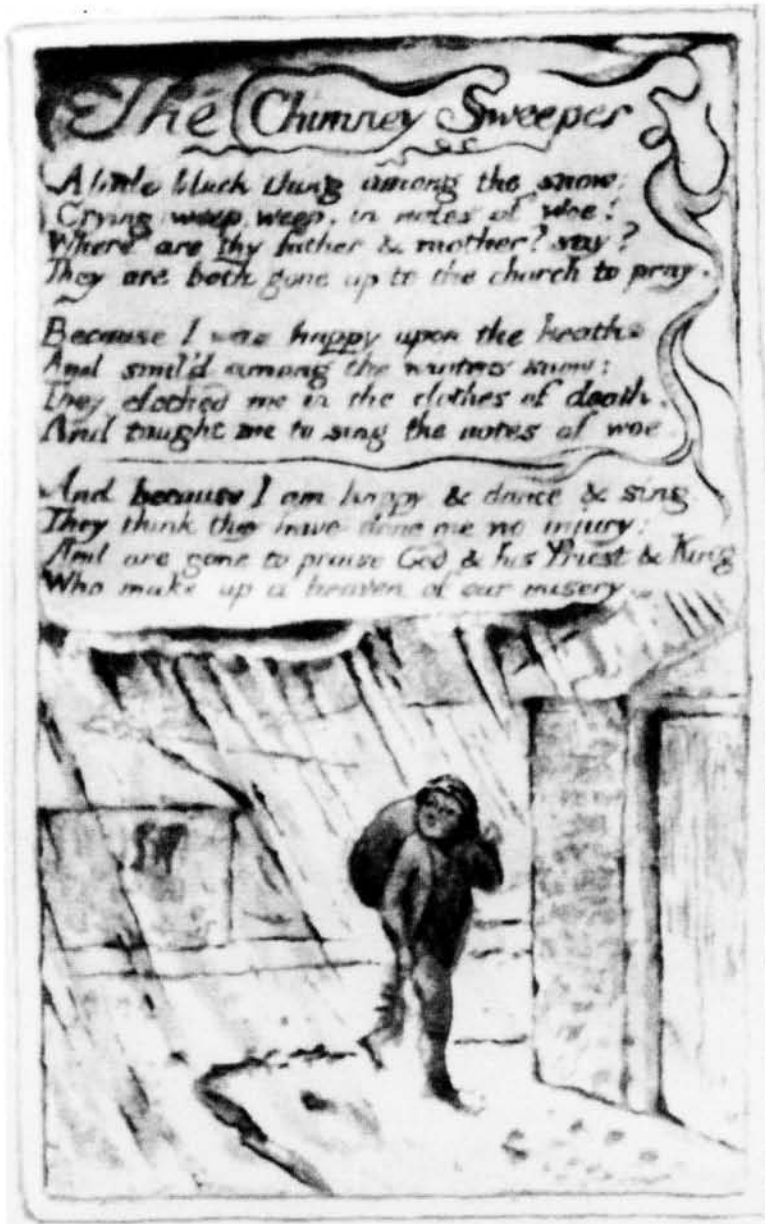 The Chimney Sweeper
A little black thing among the snow:
Crying weep, weep, in notes of woe!
Where are thy father & mother? say?
They are both gone up to the church to pray.
Because I was happy upon the heath.
And smil'd among the winters snow:
They clothed me in the clothes of death.
And taught me to sing the notes of woe.
And because I am happy & dance & sing.
They think they have done me no injury:
And are gone to praise God & his Priest & King
Who make up a heaven of our misery.